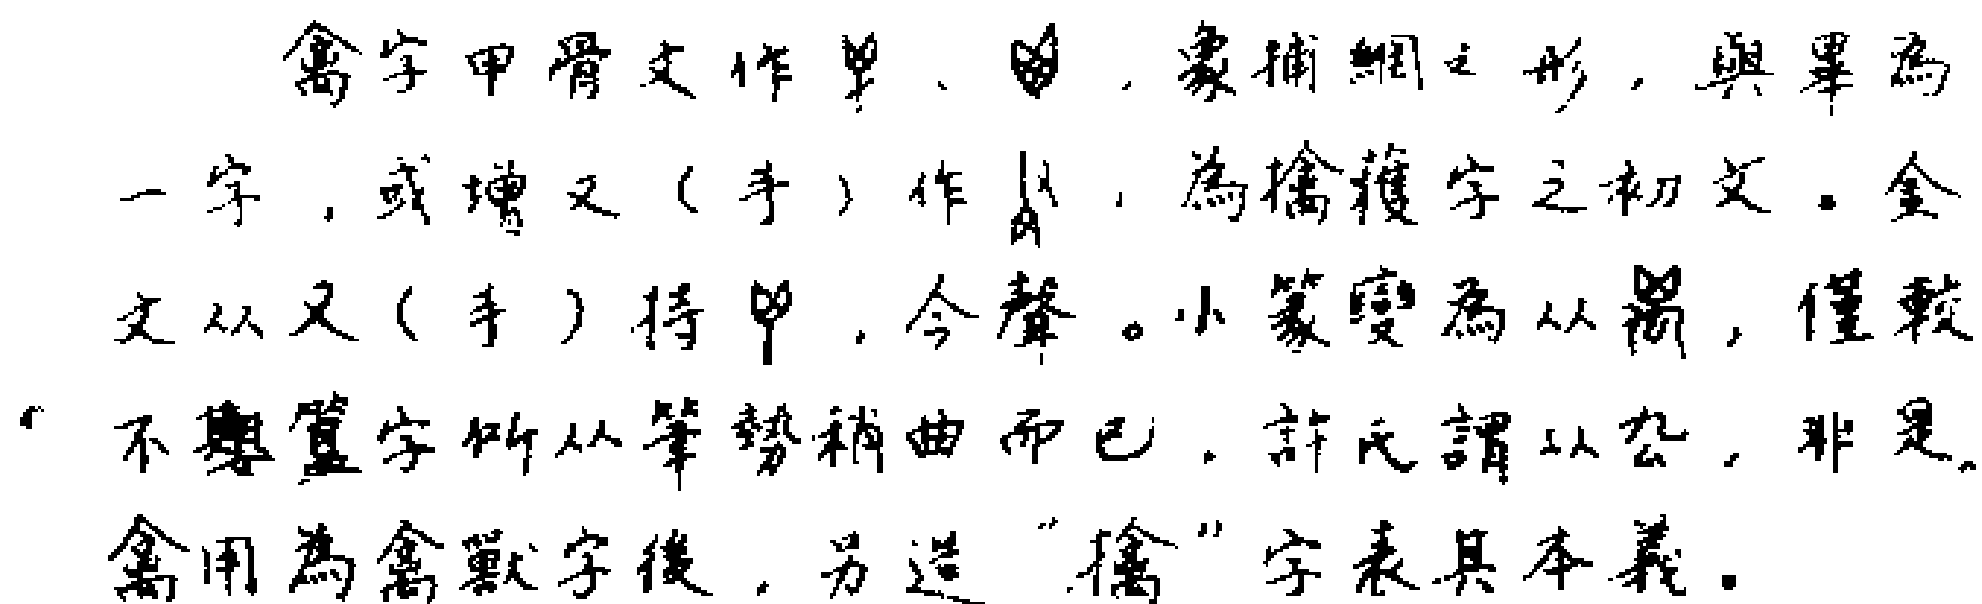 禽字甲骨文作、，象捕網之形，與畢為
一字，或增又（手）作，為擒獲字之初文。金
文从又（手）持，今聲。小篆變為从，僅較
不字所从筆勢稍曲而已，許氏謂从厹，非是。
禽用為禽獸字後，另造“擒”字表其本義。